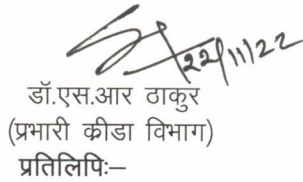 22/11/22
डॉ.एस.आर ठाकुर
(प्रभारी क्रीडा विभाग)
प्रतिलिपिः–